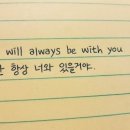 will always be with you
난 항상 너와 있을거야.